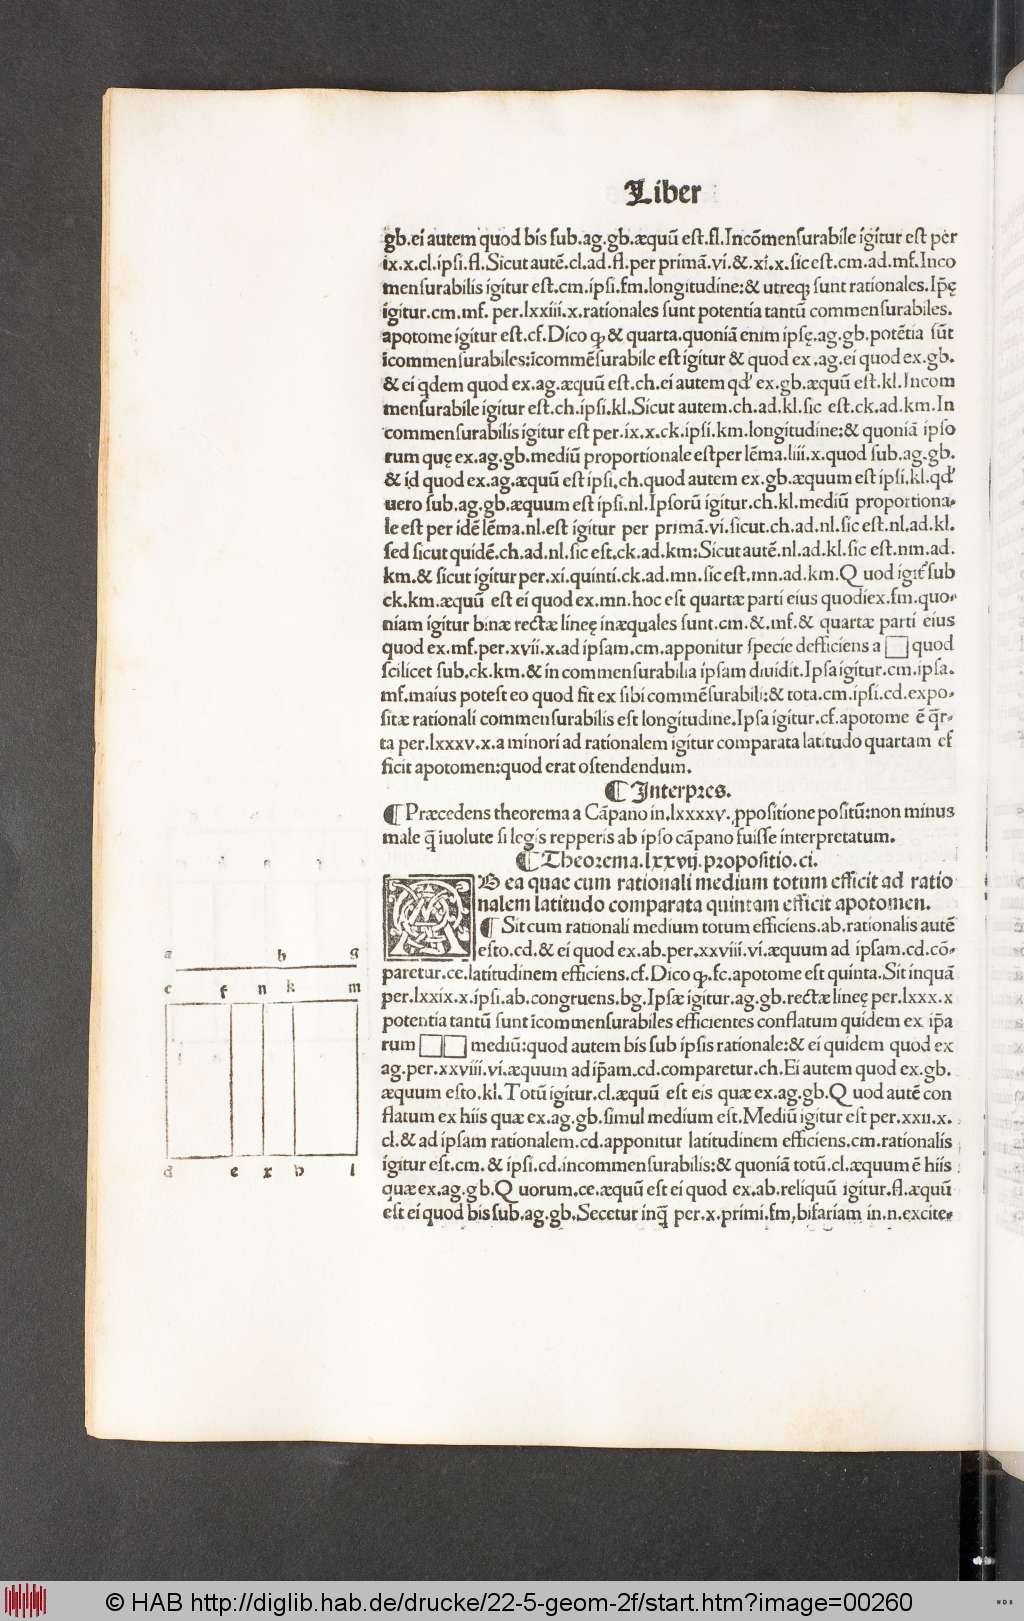 Liber
gb.ei autem quod bis sub.ag.gb.æquũ est.fl.Incõmensurabile igitur est per
ix.x.cl.ipsi.fl.Sicut autẽ.cl.ad.fl.per primã.vi.&.xi.x.sic est.cm.ad.mf.Inco
mensurabilis igitur est.cm.ipsi.fm.longitudine:& utreq; sunt rationales.Ip̃ę
igitur.cm.mf. per.lxxiii.x.rationales sunt potentia tantũ commensurabiles.
apotome igitur est.cf.Dico ꝙ & quarta.quoniã enim ipsę.ag.gb.potẽtia sũt
ĩcommensurabiles:ĩcommẽsurabile est igitur & quod ex.ag.ei quod ex.gb.
& ei qdem quod ex.ag.æquũ est.ch.ei autem qđ ex.gb.æquũ est.kl.Incom
mensurabile igitur est.ch.ipsi.kl.Sicut autem.ch.ad.kl.sic est.ck.ad.km.In
commensurabilis igitur est per.ix.x.ck.ipsi.km.longitudine:& quoniã ipso
rum quę ex.ag.gb.mediũ proportionale est per lẽma.liii.x.quod sub.ag.gb.
& id quod ex.ag.æquũ est ipsi.ch.quod autem ex.gb.æquum est ipsi.kl.qđ
uero sub.ag.gb.æquum est ipsi.nl.Ipsorũ igitur.ch.kl.mediũ proportiona-
le est per idẽ lẽma.nl.est igitur per primã.vi.sicut.ch.ad.nl.sic est.nl.ad.kl.
sed sicut quidẽ.ch.ad.nl.sic est.ck.ad.km:Sicut autẽ.nl.ad.kl.sic est.nm.ad.
km.& sicut igitur per.xi.quinti.ck.ad.mn.sic est.mn.ad.km.Quod igit̃ sub
ck.km.æquũ est ei quod ex.mn.hoc est quartæ parti eius quod iex.fm.quo-
niam igitur binæ rectæ lineę inæquales sunt.cm.&.mf.& quartæ parti eius
quod ex.mf.per.xvii.x.ad ipsam.cm.apponitur specie defficiens a □ quod
scilicet sub.ck.km.& in commensurabilia ipsam diuidit.Ipsa igitur.cm.ipsa.
mf.maius potest eo quod fit ex sibi commẽsurabili:& tota.cm.ipsi.cd.expo-
sitæ rationali commensurabilis est longitudine.Ipsa igitur.cf.apotome ẽ q̃r-
ta per.lxxxv.x.a minori ad rationalem igitur comparata latitudo quartam ef
ficit apotomen:quod erat ostendendum.
¶ Interpres.
¶ Præcedens theorema a Cãpano in.lxxxxv.ꝓpositione positũ:non minus
male q̃ iuolute si legis repperis ab ipso cãpano fuisse interpretatum.
¶ Theorema.lxxvij.propositio.ci.
AB ea quae cum rationali medium totum efficit ad ratio
nalem latitudo comparata quintam efficit apotomen.
¶ Sit cum rationali medium totum efficiens.ab.rationalis autẽ
esto.cd.& ei quod ex.ab.per.xxviii.vi.æquum ad ipsam.cd.cõ-
paretur.ce.latitudinem efficiens.cf.Dico ꝙ.fc.apotome est quinta.Sit inquã
per.lxxix.x.ipsi.ab.congruens.bg.Ipsæ igitur.ag.gb.rectæ lineę per.lxxx.x
potentia tantũ sunt ĩcommensurabiles efficientes conflatum quidem ex ip̃a
rum □□ mediũ:quod autem bis sub ipsis rationale:& ei quidem quod ex
ag.per.xxviii.vi.æquum ad ip̃am.cd.comparetur.ch.Ei autem quod ex.gb.
æquum esto.kl.Totũ igitur.cl.æquũ est eis quæ ex.ag.gb.Quod autẽ con
flatum ex hiis quæ ex.ag.gb.simul medium est.Mediũ igitur est per.xxii.x.
cl.& ad ipsam rationalem.cd.apponitur latitudinem efficiens.cm.rationalis
igitur est.cm. & ipsi.cd.incommensurabilis:& quoniã totũ.cl.æquum ẽ hiis
quæ ex.ag.gb.Quorum.ce.æquũ est ei quod ex.ab.reliquũ igitur.fl.æquũ
est ei quod bis sub.ag.gb.Secetur inq̃ per.x.primi.fm,bifariam in.n.excite-
a b g
c f n k m
d e x h l
© HAB http://diglib.hab.de/drucke/22-5-geom-2f/start.htm?image=00260